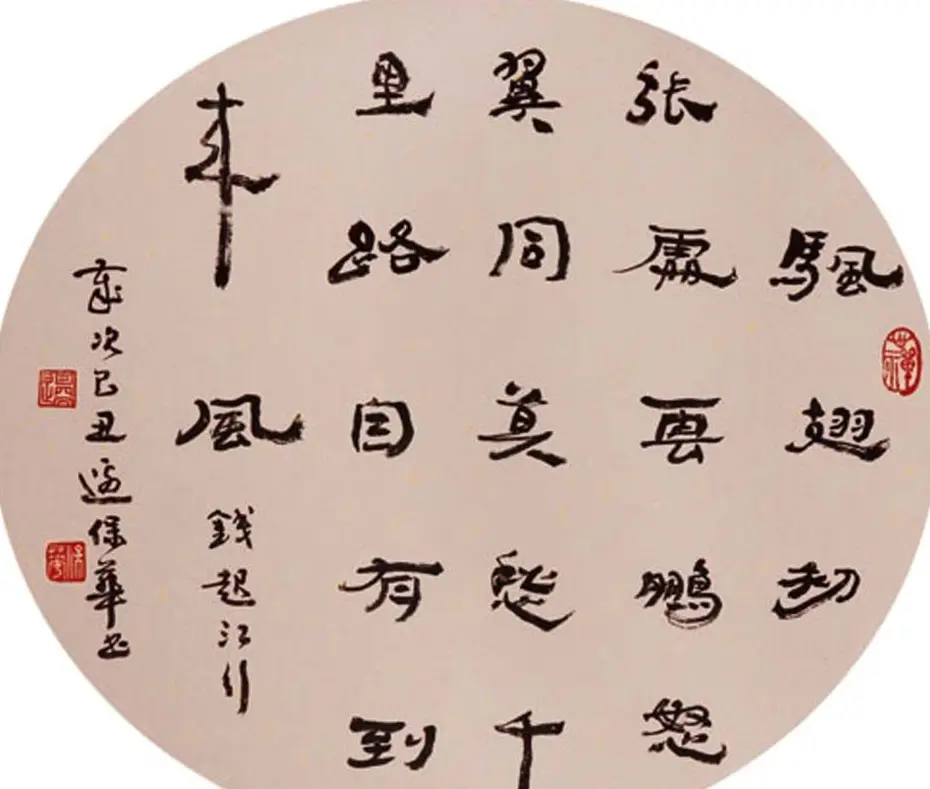 颿翅初
張處雲鵬怒
翼同莫愁千
里路自有到
來風
錢起江行
歲次己丑邊保華書